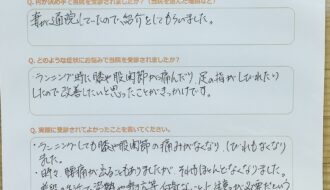 Q. 何が決め手で当院を受診されましたか？（当院を選んだ理由など）
妻が通院していたので、紹介をしてもらいました。
Q. どのような症状にお悩みで当院を受診されましたか？
ランニング時に膝や股関節が痛んだり、足の指がしびれたり
したので改善したいと思ったことがきっかけです。
Q. 実際に受診されてよかったことを書いてください。
・ランニングしても膝や股関節の痛みがなくなり、しびれもなくなり
ました。
・時々、腰痛が出ることもありましたが、それもほとんどなくなりました。